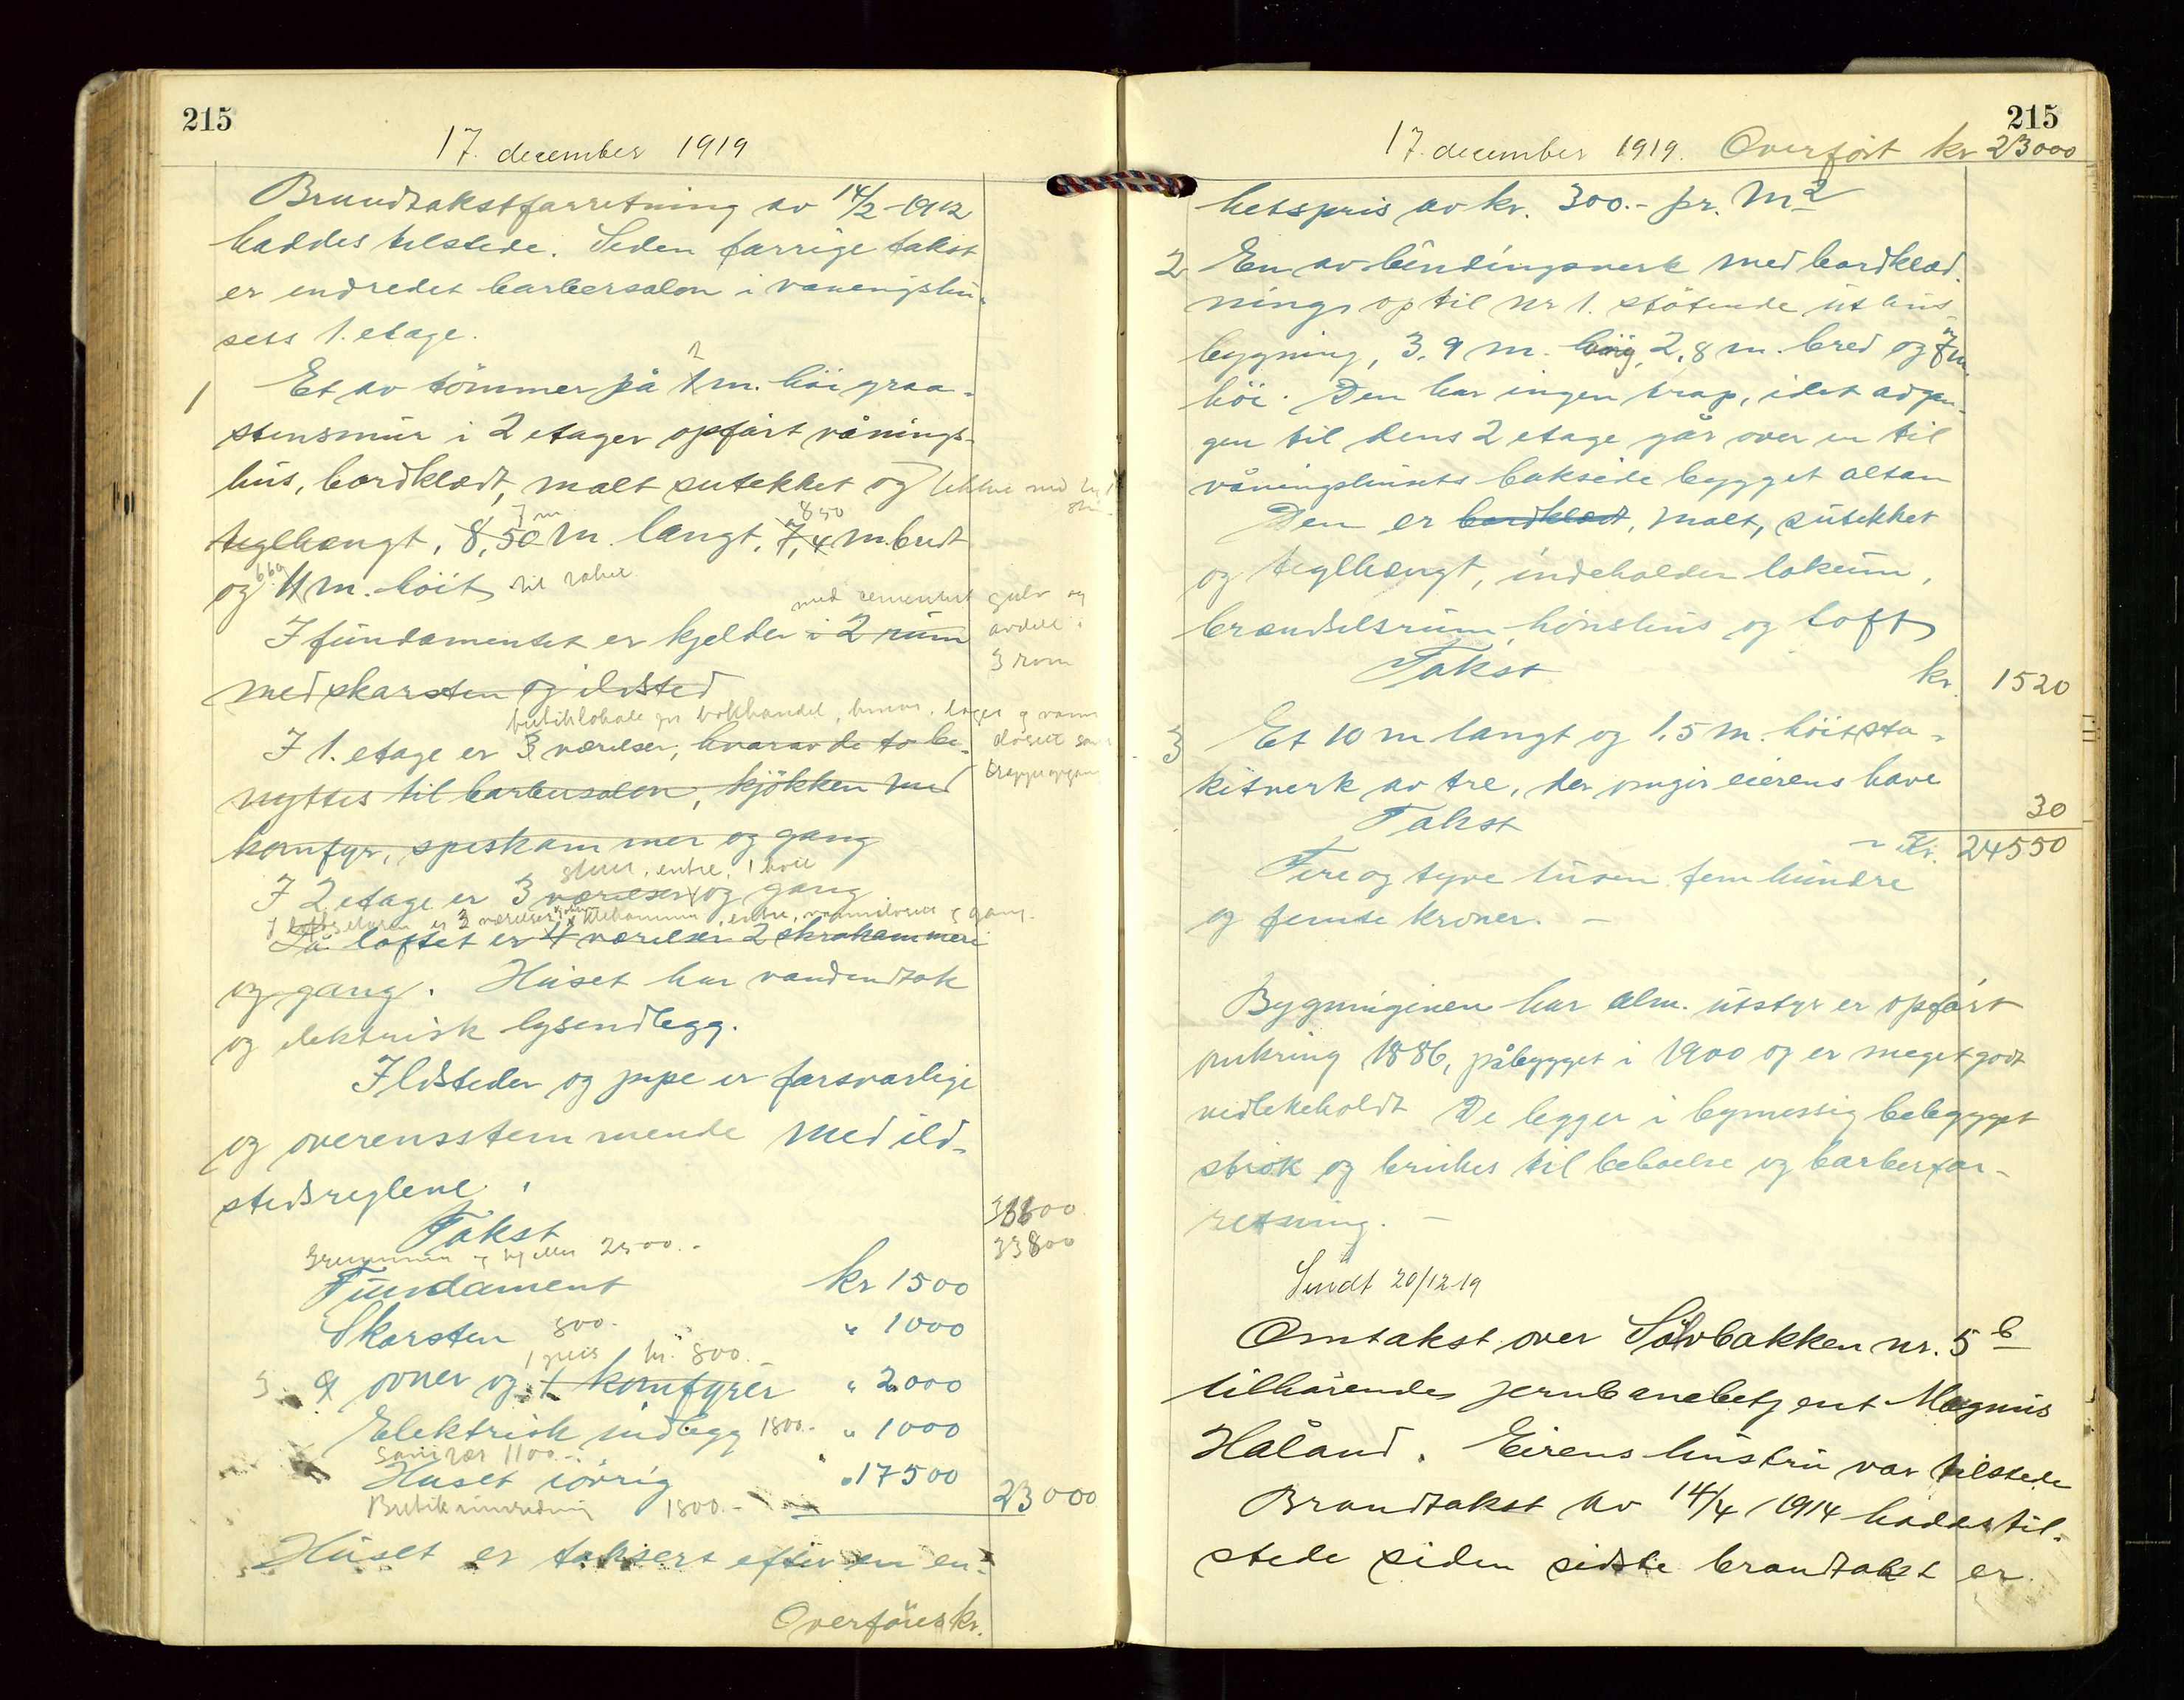 215
17. december 1919
Brandtakstforretning av 14/2-1912
haddes tilstede. Siden forrige takst
er indredet barbersalon i vaaningshu-
sets 1. etage.
2
1 Et av tömmer på 1 m. höi graa-
stensmur i 2 etager opfört vånings-
hus, bordklædt, malt sutekket og tekket med
7 m 850
teglhængt, 8,50 m. langt, 7,4 m. bredt
660
og 11 m. höit til raher
med cementert gulv og
I fundamentet er kjelder i 2 rum avdelt i
3 rom
med skorsten og ildsted
butiklokale for bokhandel, lager g vann
I 1. etage er 3 værelser, hvorav de to be- closett samt
nyttes til barbersalon, kjökken med trappeopgang
komfyr, spiskammer og gang
stuer, entre, 1
I 2 etage er 3 værelser og gang
I loftsetagen er 3 værelser, entre, vannclosett g gang.
På loftet er 4 værelser 2 skråkammer
og gang. Huset har vandindtak
og elektrisk lysindlegg.
Ildsteder og pipe er forsvarlige
og overensstemmende med ild-
stedsreglene.
Takst
33800
Grunnmur g kjeller 2500.-
Fundament kr 1500
Skorsten 800.- " 1000
1 kr. 800.-
3 9 ovner og 1 komfyrer " 2000
Elektrisk indlegg 1800.- " 1000
Sanitær 1100.-
Huset iövrig " 17500 23000
Butikinnredning 1800.-
Huset er taksert efter en en-
Overföres kr.
215
17. december 1919. Overfört kr 23000
hetspris av kr. 300.- pr. m2
2 En av bindingsverk med bordklæd-
ning op til nr 1. stötende uthus-
bygning, 3,9 m. lang, 2,8 m. bred og 7 m
höi. Den har ingen trap, idet adgan-
gen til dens 2 etage går over en til
våningshusets bakside bygget altan
Den er bordklædt, malt, sutekket
og teglhængt, indeholder lokum,
brændselsrum, hönshus og loft
Takst kr. 1520
3 Et 10 m langt og 1,5 m. höit sta-
kitverk av tre, der omgir eierens have
Takst 30
Kr. 24550
Fire og tyve tusen fem hundre
og femti kroner. -
Bygningenen har alm. utstyr er opfört
omkring 1886, påbygget i 1900 og er meget godt
vedlikeholdt De legger i bymessig bebygget
strök og brukes til beboelse og barberfor-
retning. -
Sendt 20/12 19
Omtakst over Sölvbakken nr. 5 b
tilhörende jernbanebetjent Magnus
Håland. Eirens hustru var tilstede
Brandtakst av 14/4 1914 haddes til-
stede siden sidste brandtakst er